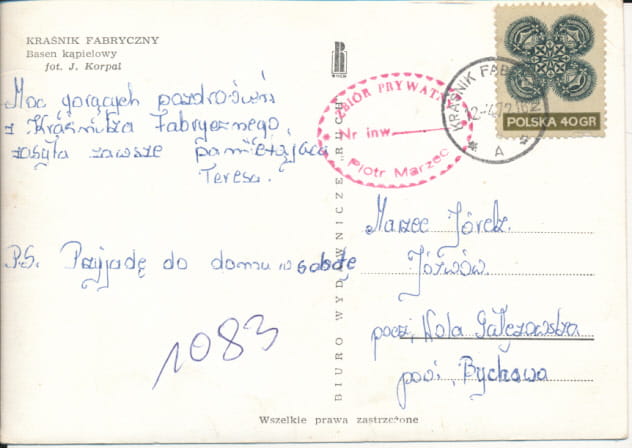 KRAŚNIK FABRYCZNY
Basen kąpielowy
fot. J. Korpal
Moc gorących pozdrowień
z Kraśnika Fabrycznego,
zasyła zawsze pamiętająca
Teresa.
P.S. Przyjadę do domu w sobotę
1083
BIURO WYDAWNICZE „RUCH"
RUCH
ZBIÓR PRYWATNY
Nr inw.
Piotr Marzec
KRAŚNIK FABR
A
POLSKA 40 GR
Marzec Józef
Józwów
pocz, Wola Gałęzowska
pow. Bychawa
Wszelkie prawa zastrzeżone